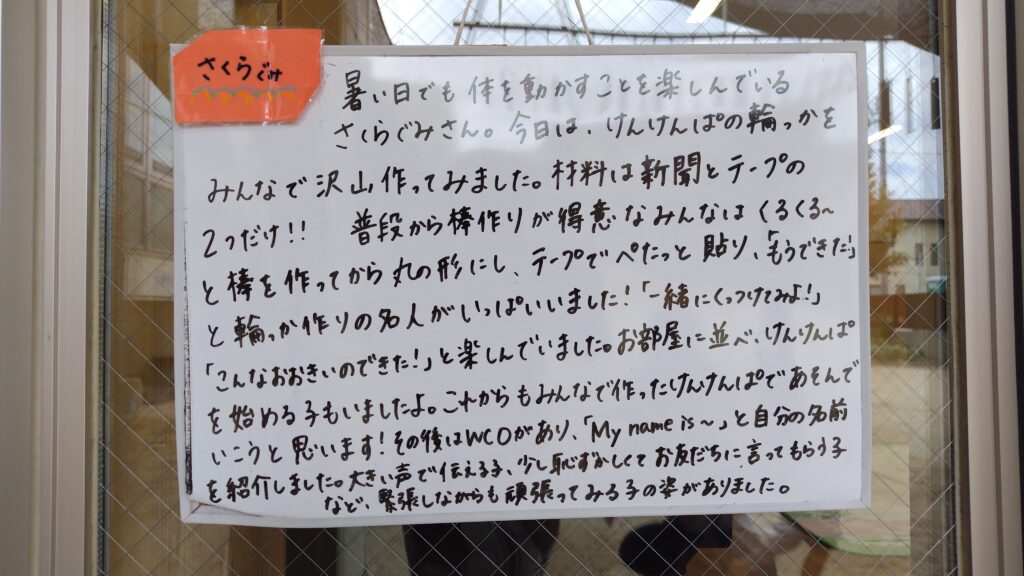 さくらぐみ
暑い日でも体を動かすことを楽しんでいる
さくらぐみさん。今日は、けんけんぱの輪っかを
みんなで沢山作ってみました。材料は新聞とテープの
2つだけ!! 普段から棒作りが得意なみんなはくるくる~
と棒を作ってから丸の形にし、テープでぺたっと貼り、「もうできた!」
と輪っか作りの名人がいっぱいいました!「一緒にくっつけてみよ!」
「こんなおおきいのできた!」と楽しんでいました。お部屋に並べ、けんけんぱ
を始める子もいましたよ。これからもみんなで作ったけんけんぱであそんで
いこうと思います!その後はWCOがあり、「My name is ~」と自分の名前
を紹介しました。大きい声で伝える子、少し恥ずかしくてお友だちに言ってもらう子
など、緊張しながらも頑張ってみる子の姿がありました。